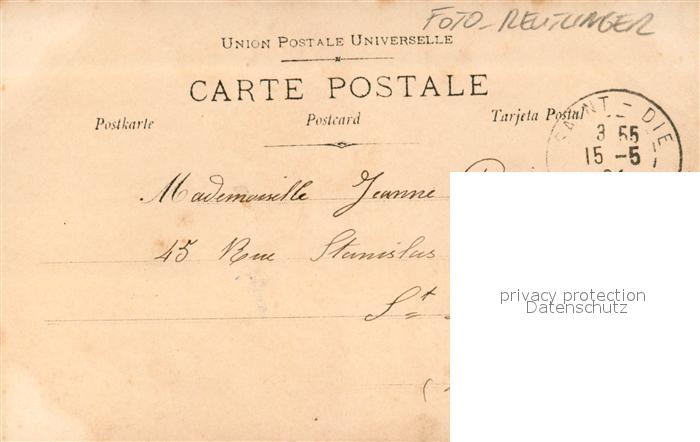 FOTO-REUTLINGER
UNION POSTALE UNIVERSELLE
CARTE POSTALE
Postkarte Postcard Tarjeta Postal
SAINT-DIÉ
3 55
15 -5
Mademoiselle Jeanne
45 Rue Stanislas
St
privacy protection
Datenschutz